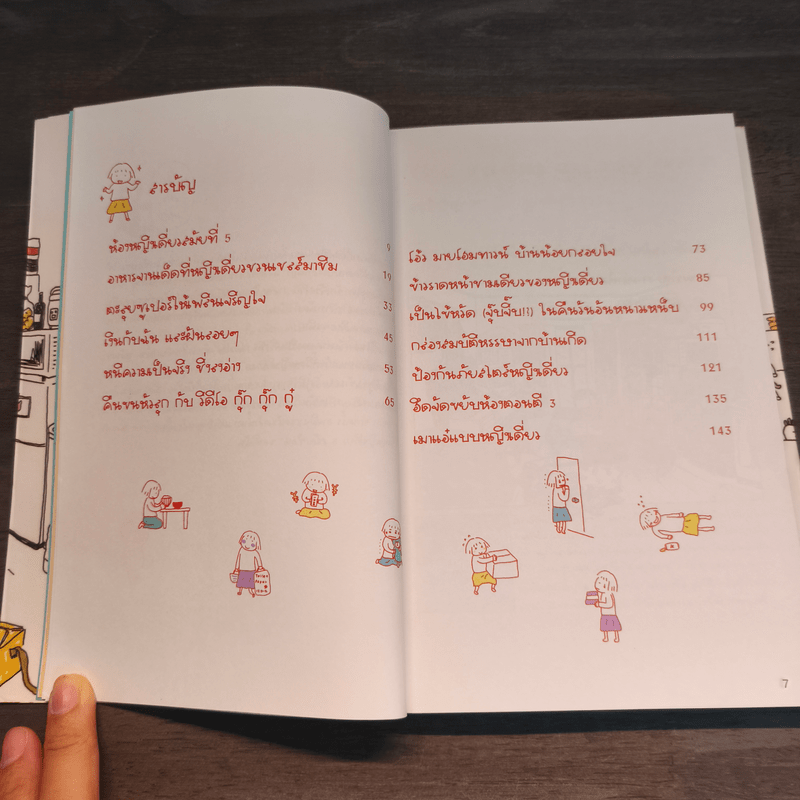 สารบัญ
ห้องหญิงเดี่ยวสมัยที่ 5 9
อาหารจานเด็ดที่หญิงเดี่ยวชวนเชลล์มาชิม 19
ตะลุยซูเปอร์ให้เพลินเจริญใจ 33
เงินกับฉัน และฝันลอยๆ 45
หนีความเป็นจริง ขี่ลงอ่าง 53
คืนขนหัวลุก กับ วิดีโอ กุ๊ก กุ๊ก กู๋ 65
โอ้ว มายโฮมทาวน์ บ้านน้อยคอยใจ 73
ข้าวราดหน้าชามเดียวของหญิงเดี่ยว 85
เป็นไข้หวัด (จุ๊บจิ๊บ!?) ในคืนวันอันหนาวเหน็บ 99
กล่องสมบัติหรรษาจากบ้านเกิด 111
ป้องกันภัยสไตล์หญิงเดี่ยว 121
ฮึดจัดขยับห้องตอนตี 3 135
เมาแอ๋แบบหญิงเดี่ยว 143
7